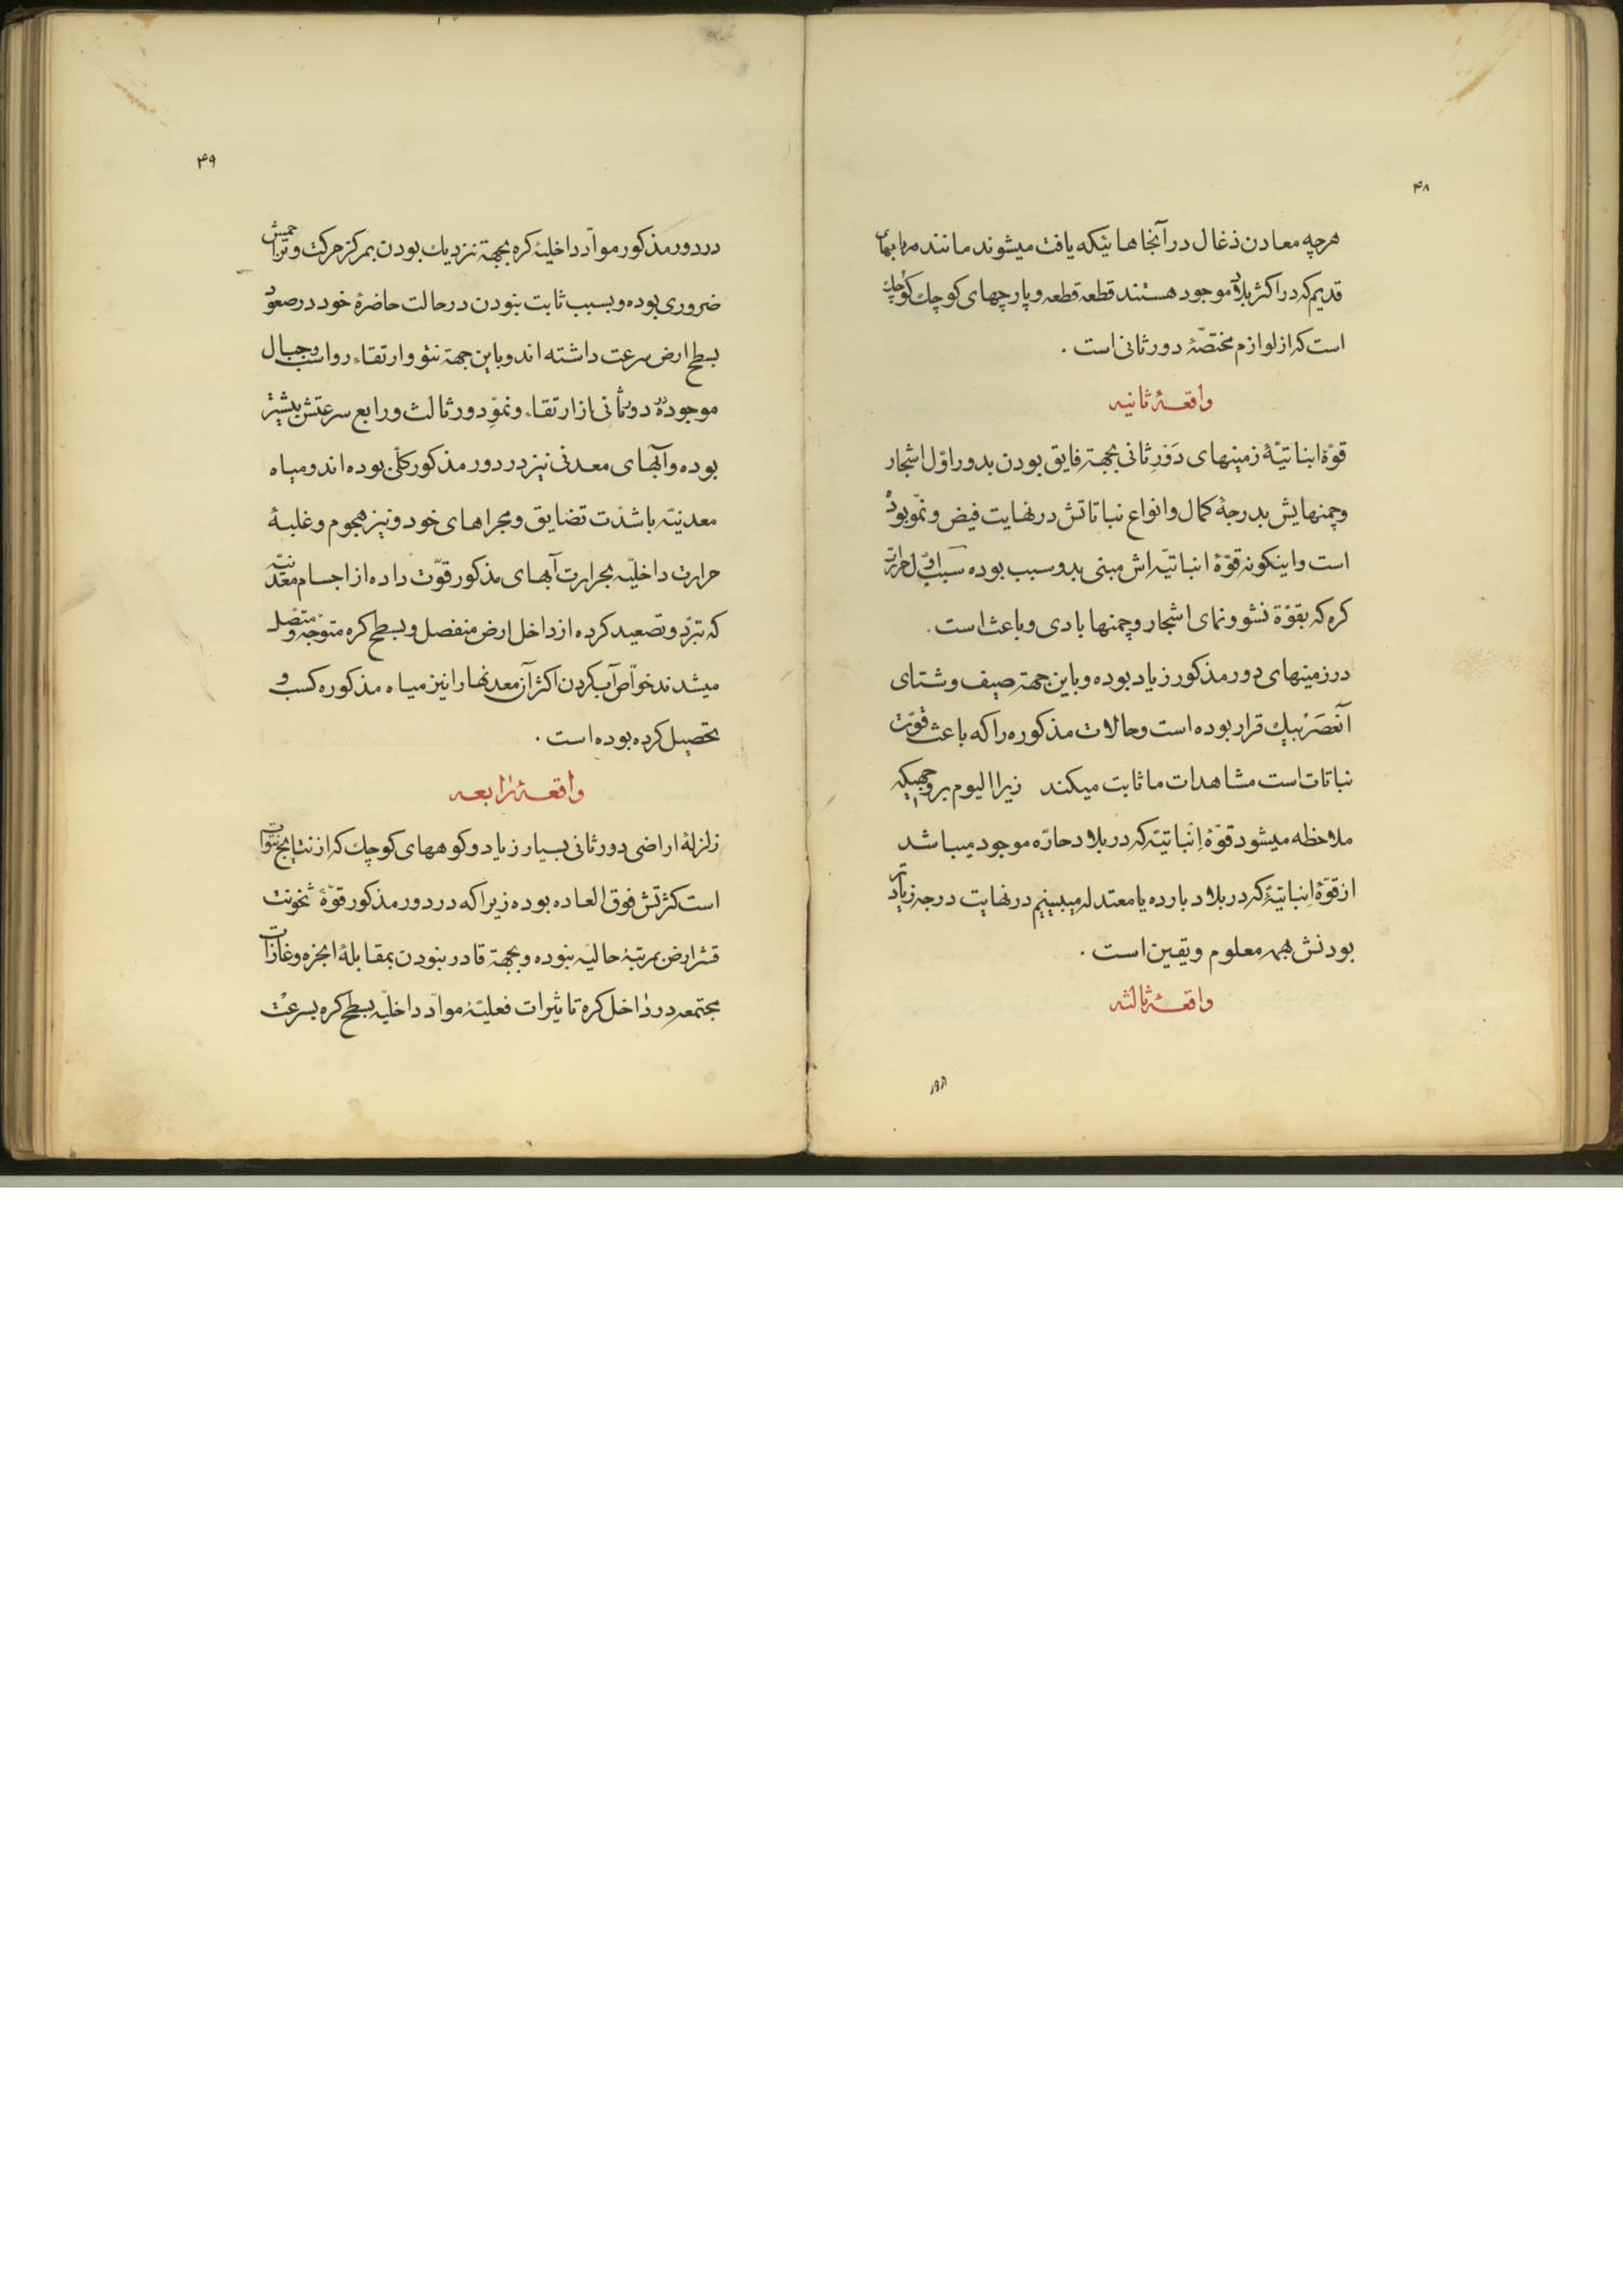 ۴۸
هرچه معادن ذغال در آنجاهائیکه یافت میشوند مانند
قدیم که در اکثر بلاد موجود هستند قطعه قطعه و پارچهای کوچك کوچك
است که از لوازم مختصّهٔ دور ثانی است .
واقعهٔ ثانیه
قوّهٔ انباتیّهٔ زمینهای دَوَرِ ثانی بجهة فایق بودن بدور اوّل اشجار
و چمنهایش بدرجهٔ کمال و انواع نباتاتش در نهایت فیض و نموّ بوده
است و اینکونه قوّهٔ انباتیّه اش مبنی بدو سبب بوده سبب اوّل حرارت
کره که بقوّة نشو و نمای اشجار و چمنها بادی و باعث است .
در زمینهای دور مذکور زیاد بوده و باین جهة صیف و شتای
آنعصر بیك قرار بوده است و حالات مذکوره را که باعث قوّت
نباتات است مشاهدات ما ثابت میکند زیرا الیوم بر وجهیکه
ملاحظه میشود قوّهٔ اِنباتیّه که در بلاد حارّه موجود میباشد
از قوّهٔ اِنباتیّهٔ که در بلاد بارده یا معتدله میبینیم در نهایت درجه زیادتر
بودنش بهمه معلوم و یقین است .
واقعهٔ ثالثه
۴۹
در دور مذکور موادّ داخلیهٔ کره بجهة نزدیك بودن بمرکز حرکت و
ضروری بوده و بسبب ثابت نبودن در حالت حاضرهٔ خود در صعود
بسطح ارض سرعت داشته اند و باین جهة نتؤ و ارتقاء رواسب و جبال
موجودهٔ دور ثانی از ارتقاء و نموّ دور ثالث و رابع سرعتش بیشتر
بوده و آبهای معدنی نیز در دور مذکور کلّی بوده اند و میاه
معدنیّه با شدّت تضایق و مجراهای خود و نیز هجوم و غلبهٔ
حرارت داخلیّه بحرارت آبهای مذکور قوّت داده از اجسام معدنیّه
که تبرّد و تصعید کرده از داخل ارض منفصل و بسطح کره متوجّه و متصل
میشدند خواصّ آب کردن اکثر آن معدنها را نیز میاه مذکوره کسب و
تحصیل کرده بوده است .
واقعهٔ رابعه
زلزلهٔ اراضی دور ثانی بسیار زیاد و کوههای کوچك که از نتایج نتوآت
است کثرتش فوق العاده بوده زیرا که در دور مذکور قوّهٔ ثخونت
قشر ارض بمرتبهٔ حالیّه نبوده و بجهة قادر نبودن بمقابلهٔ ابخره و غازات
مجتمعه در داخل کره تاثیرات فعلیّهٔ موادّ داخلیّه بسطح کره بسرعت